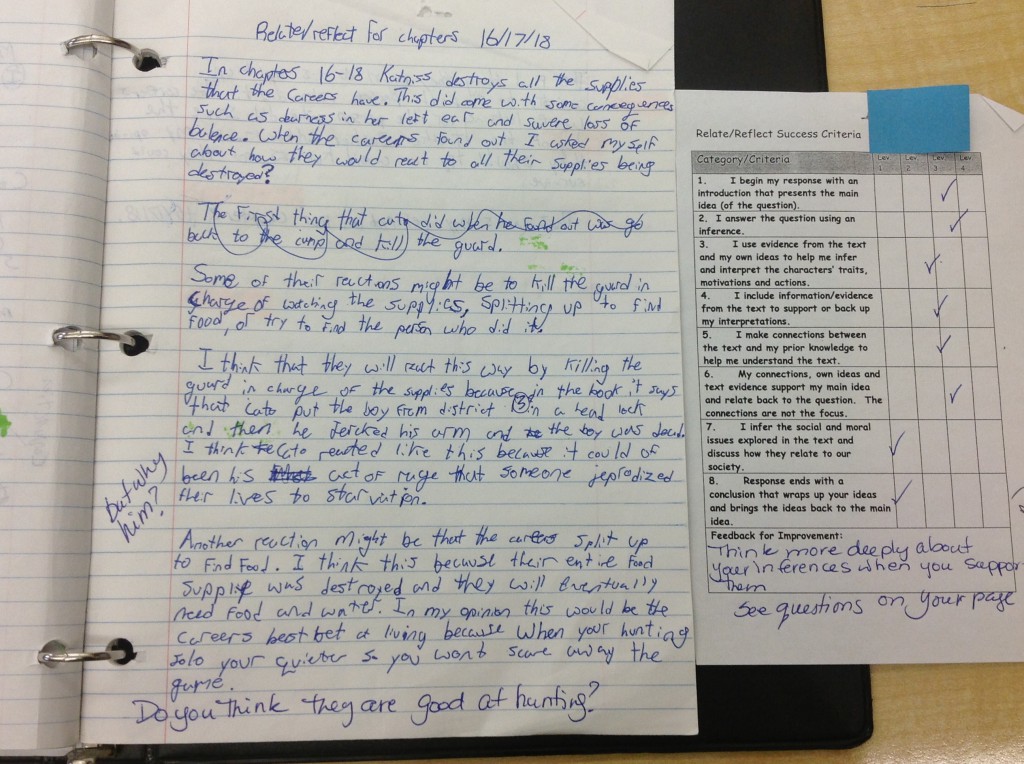 Relate/reflect for chapters 16/17/18
In chapters 16-18 Katniss destroys all the supplies
that the Careers have. This did come with some consequences
such as deafness in her left ear and suvere loss of
balence. When the careers found out I asked my self
about how they would react to all their supplies being
destroyed?
The First thing that cato did when he found out was go
back to the camp and kill the guard.
Some of their reactions might be to kill the guard in
charge of watching the supplies, splitting up to find
food, or try to find the person who did it.
I think that they will react this way by killing the
guard in charge of the supplies because in the book it says
that Cato put the boy from district 3 in a head lock
and then he Jercked his arm and the boy was dead.
I think Cato reacted like this because it could of
been his act of rage that someone jeprodized
their lives to starvation.
but why
him?
Another reaction might be that the careers split up
to find food. I think this because their entire food
supplie was destroyed and they will eventually
need food and water. In my opinion this would be the
careers best bet at living because when your hunting
solo your quieter so you wont scare away the
game.
Do you think they are good at hunting?
Relate/Reflect Success Criteria
Category/Criteria Lev 1 Lev 2 Lev 3 Lev 4
1. I begin my response with an
introduction that presents the main
idea (of the question).
2. I answer the question using an
inference.
3. I use evidence from the text
and my own ideas to help me infer
and interpret the characters' traits,
motivations and actions.
4. I include information/evidence
from the text to support or back up
my interpretations.
5. I make connections between
the text and my prior knowledge to
help me understand the text.
6. My connections, own ideas and
text evidence support my main idea
and relate back to the question. The
connections are not the focus.
7. I infer the social and moral
issues explored in the text and
discuss how they relate to our
society.
8. Response ends with a
conclusion that wraps up your ideas
and brings the ideas back to the main
idea.
Feedback for Improvement:
Think more deeply about
your inferences when you support
them
See questions on your page